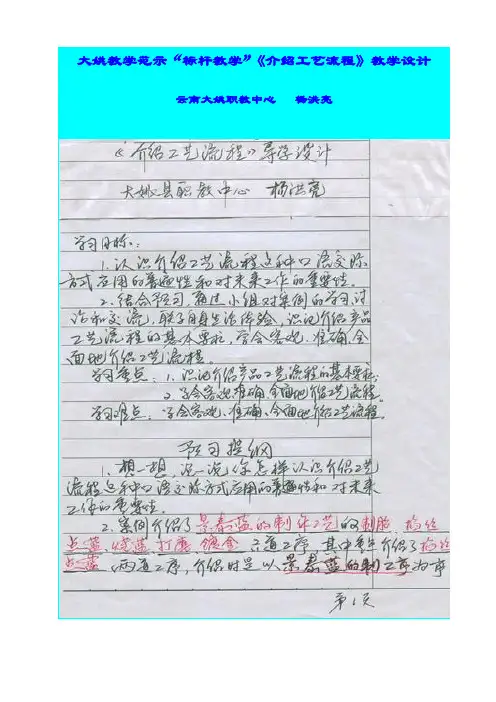 大姚教学范示“标杆教学”《介绍工艺流程》教学设计
云南大姚职教中心 杨洪亮
《介绍工艺流程》导学设计
大姚县职教中心 杨洪亮
学习目标:
1.认识介绍工艺流程这种口语交际
方式应用的普遍性和对未来工作的重要性。
2.结合预习,通过小组对案例的学习、讨
论和交流,联系自身生活体验,识记介绍产品
工艺流程的基本要求,学会客观、准确、全
面地介绍工艺流程。
学习重点:1.识记介绍产品工艺流程的基本要求;
2.学会客观、准确、全面地介绍工艺流程。
学习难点:学会客观、准确、全面地介绍工艺流程。
预习提纲
1.想一想,说一说,你怎样认识介绍工艺
流程这种口语交际方式应用的普遍性和对未来
工作的重要性。
2.案例介绍了景泰蓝的制作工艺的制胎、掐丝
点蓝、烧蓝、打磨、镀金六道工序,其中重点介绍了掐丝
点蓝两道工序,介绍时是以景泰蓝的制工序为序
第1页